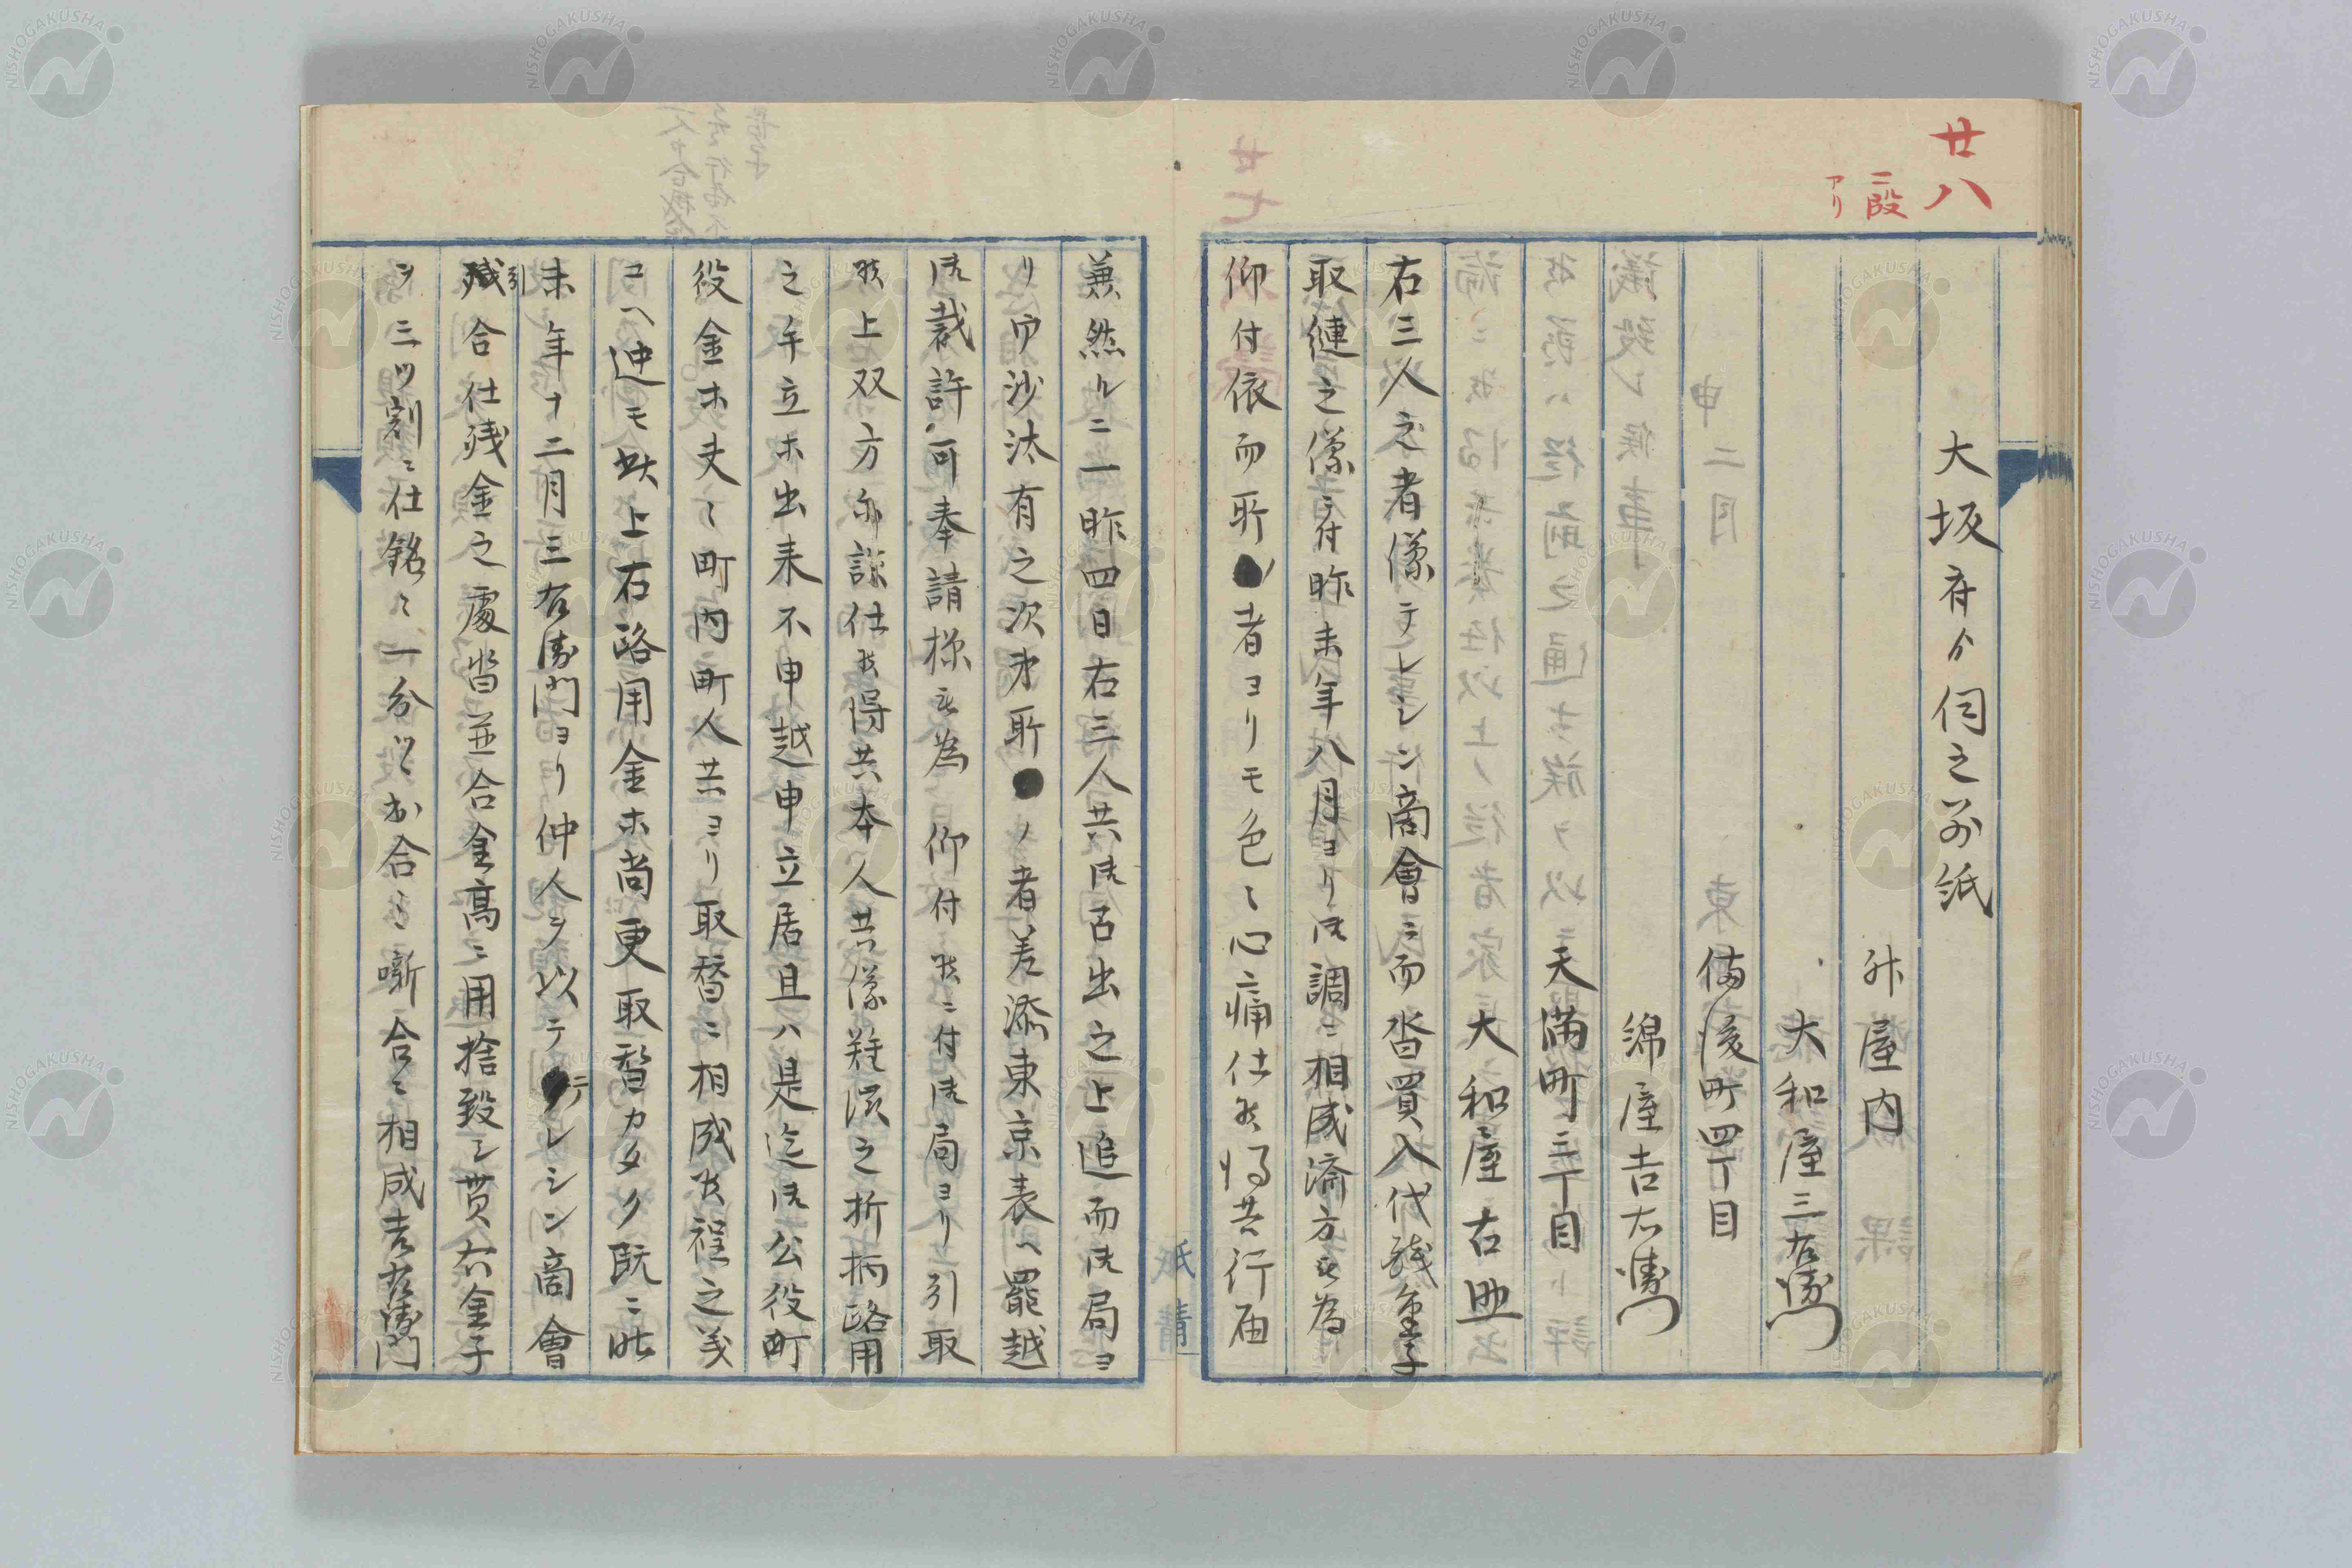 廿八
二段
アリ
大坂府ゟ伺之別紙
舛屋内
大和屋三右衛門
備後町四丁目
綿屋吉右衛門
天満町三丁目
大和屋右助
右三人之者儀テレシン商會ニ而沓買入代残金子
取縺之儀ニ付昨未年八月ヨリ御調ニ相成済方被為
仰付依而所者ヨリモ色々心痛仕候得共行届
兼然ルニ一昨四日右三人共御召出之上追而御局ヨ
リ御沙汰有之次才所ノ者差添東京表ヘ罷越
御裁許可奉請様被為仰付候ニ付御局ヨリ引取
候上双方示談仕候得共本人共儀難渋之折柄路用
之手立ホ出来不申越申立居且ハ是迄御公役町
役金ホ夫々町内町人共ヨリ取替ニ相成候程之義
ユヘ迚モ此上右路用金ホ尚更取替カタク既ニ昨
未年十二月三右衛門ヨリ仲人ヲ以テテレシン商會
引合仕残金之處沓並合金高ニ用捨致シ貰右金子
ヲ三ツ割ニ仕銘々一分ツヽ出合ニ噺合ニ相成吉右衛門